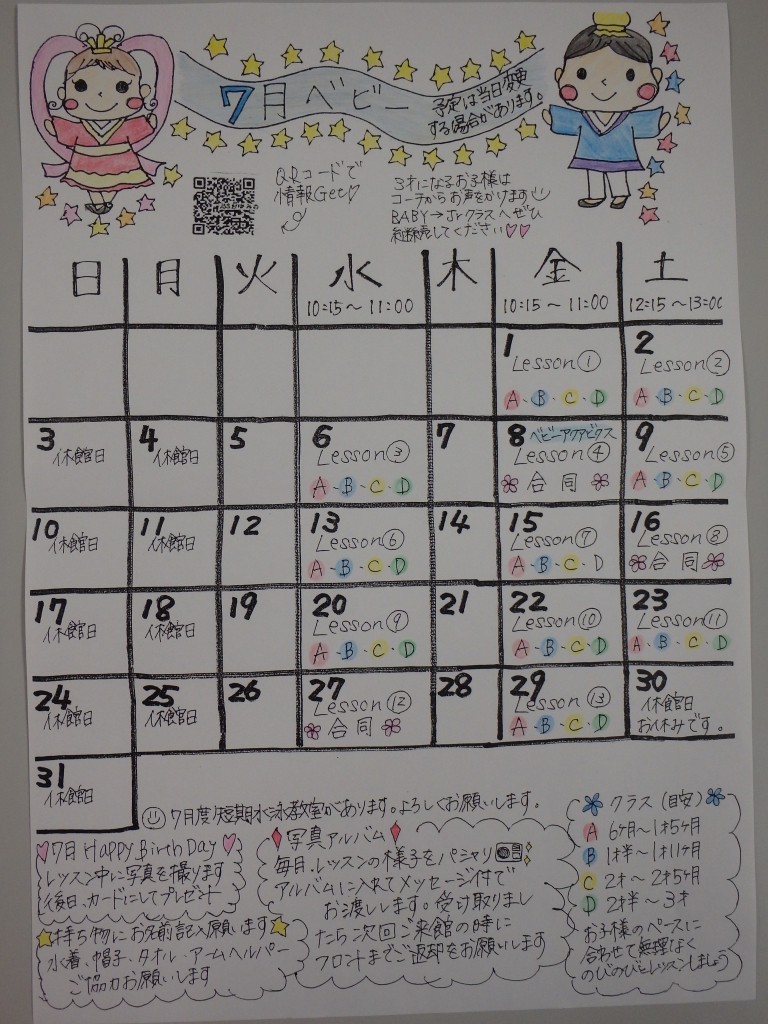 7月ベビー
予定は当日変更
する場合があります。
QRコードで
情報Get♡
3才になるお子様は
コーチからお声をかけます
BABY→Jrクラスへぜひ
継続してください♡♡
日 月 火 水 木 金 土
10:15～11:00 10:15～11:00 12:15～13:00
1 2
Lesson① Lesson②
A・B・C・D A・B・C・D
3 4 5 6 7 8 ベビーアクアビクス 9
休館日 休館日 Lesson③ Lesson④ Lesson⑤
A・B・C・D 合同 A・B・C・D
10 11 12 13 14 15 16
休館日 休館日 Lesson⑥ Lesson⑦ Lesson⑧
A・B・C・D A・B・C・D 合同
17 18 19 20 21 22 23
休館日 休館日 Lesson⑨ Lesson⑩ Lesson⑪
A・B・C・D A・B・C・D A・B・C・D
24 25 26 27 28 29 30
休館日 休館日 Lesson⑫ Lesson⑬ 休館日
合同 A・B・C・D お休みです。
31
休館日
7月度短期水泳教室があります。よろしくお願いします。
♡7月 Happy Birth Day♡
レッスン中に写真を撮ります
後日、カードにしてプレゼント
★持ち物にお名前記入願います★
水着、帽子、タオル、アームヘルパー
ご協力お願いします
♦写真アルバム♦
毎月、レッスンの様子をパシャリ
アルバムに入れてメッセージ付で
お渡しします。受け取りまし
たら次回ご来館の時に
フロントまでご返却をお願いします
クラス(目安)
A 6ヶ月～1才5ヶ月
B 1才半～1才11ヶ月
C 2才～2才5ヶ月
D 2才半～3才
お子様のペースに
合わせて無理なく
のびのびとレッスンしましょう